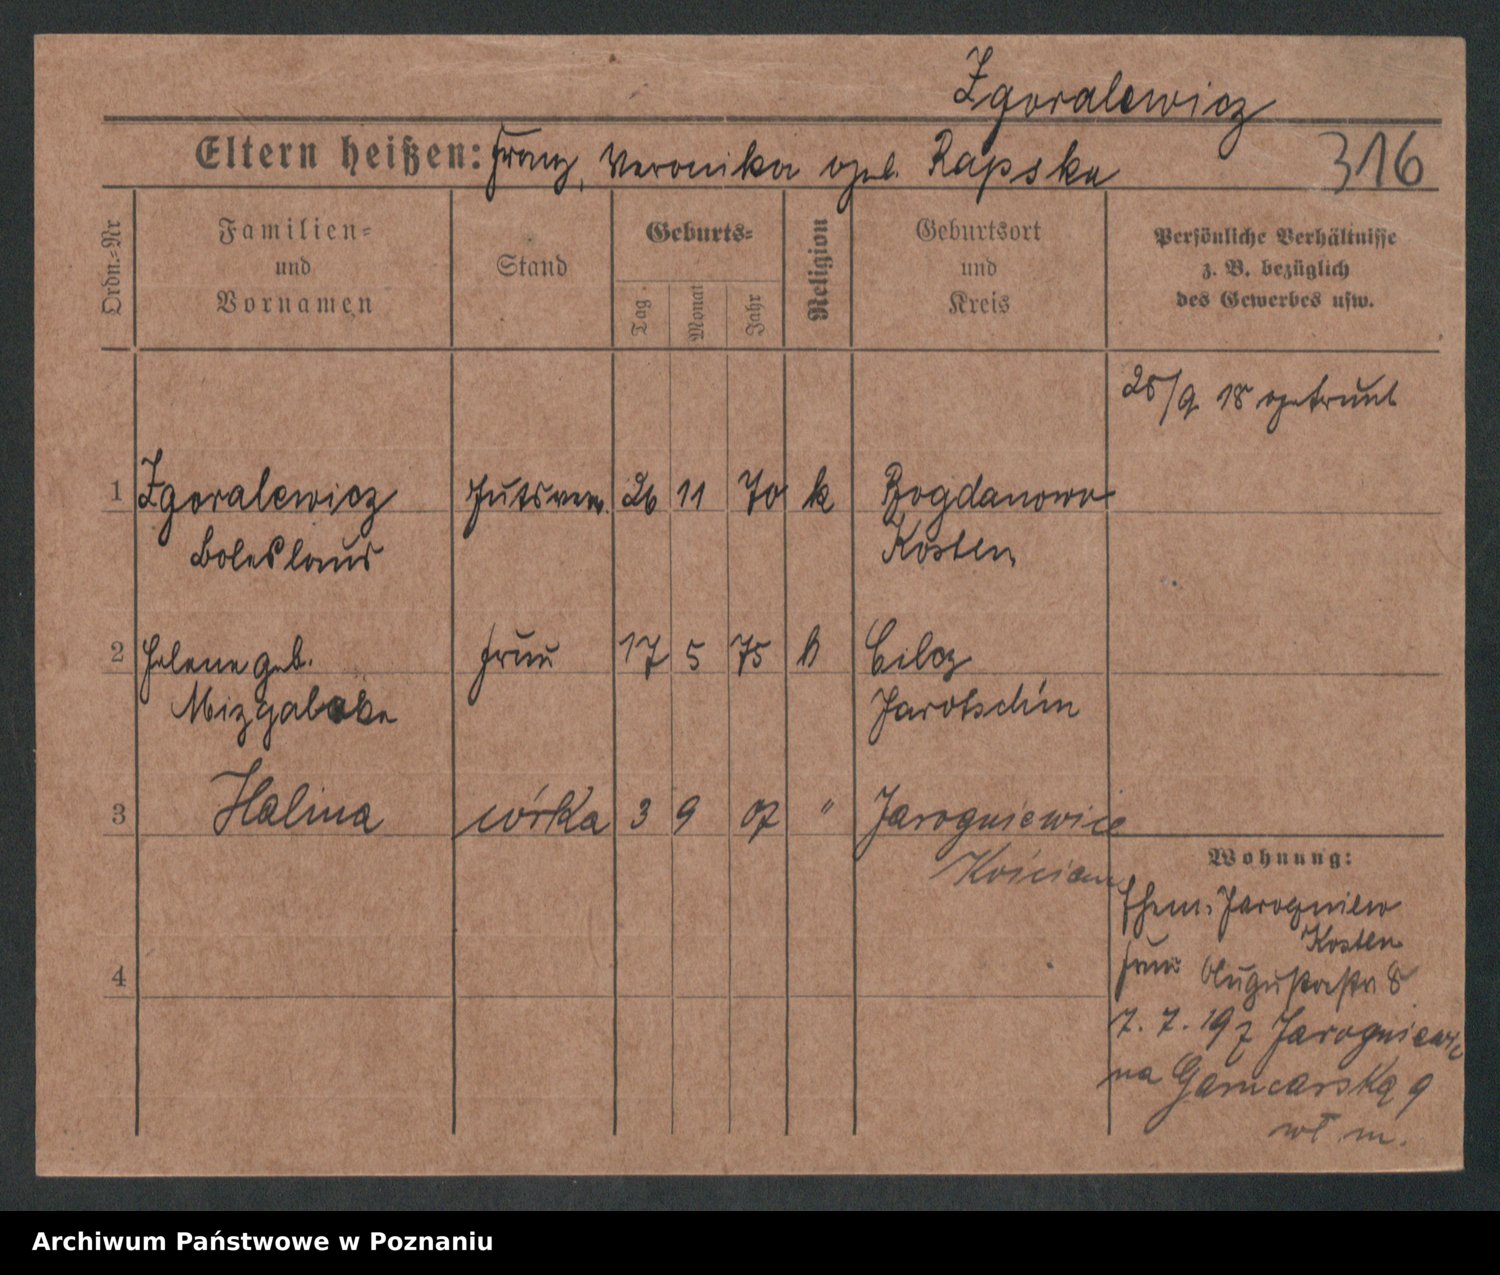 Zgoralewicz
Eltern heißen: Franz, Veronika geb. Rapska
316
Ordn.-Nr
Familien-
und
Vornamen
Stand
Geburts-
Tag
Monat
Jahr
Religion
Geburtsort
und
Kreis
Persönliche Verhältnisse
z. B. bezüglich
des Gewerbes usw.
25/9 18 getraut
1 Zgoralewicz Gutsverw. 26 11 70 k Bogdanowo
Boleslaus Kosten
2 Helene geb. Frau 17 5 75 k Cilcz
Mizgalska Jarotschin
3 Halina córka 3 9 07 " Jarogniewice
Kościan
Wohnung:
Ehem. Jarogniew
Kosten
Frau Augustastr 8
4
7. 7. 19 z Jarogniewic
na Garncarską 9
wł. m.
Archiwum Państwowe w Poznaniu